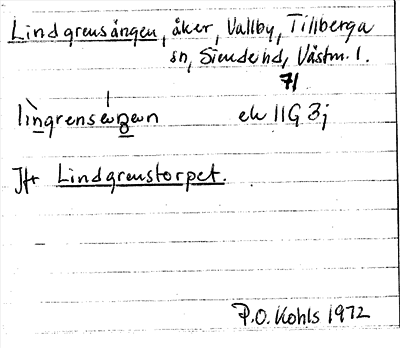 Lindgrensängen, åker, Vallby, Tillberga
sn, Siende hd, Västm. l.
71
lìngrensæŋæn ek 11G 3j
Jfr Lindgrenstorpet.
P.O. Kohls 1972